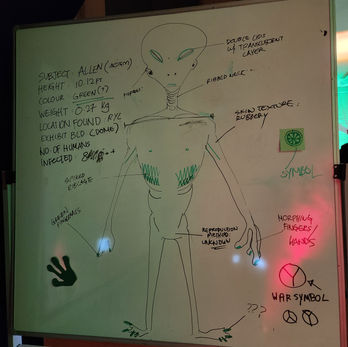 SUBJECT: ALLEN
HEIGHT: 10.12 ft
COLOUR: GREEN (?)
WEIGHT: 0.27 kg
LOCATION FOUND: RYL
EXHIBIT BLD (DOME)
NO. OF HUMANS
INFECTED
DOUBLE LIDS
W/ TRANSLUCENT
LAYER
RIBBED NECK
SKIN TEXTURE:
RUBBERY
SYMBOL
SPIKED
RIBCAGE
REPRODUCTION
METHOD:
UNKNOWN
MORPHING
FINGERS/
HANDS
WAR SYMBOL
???